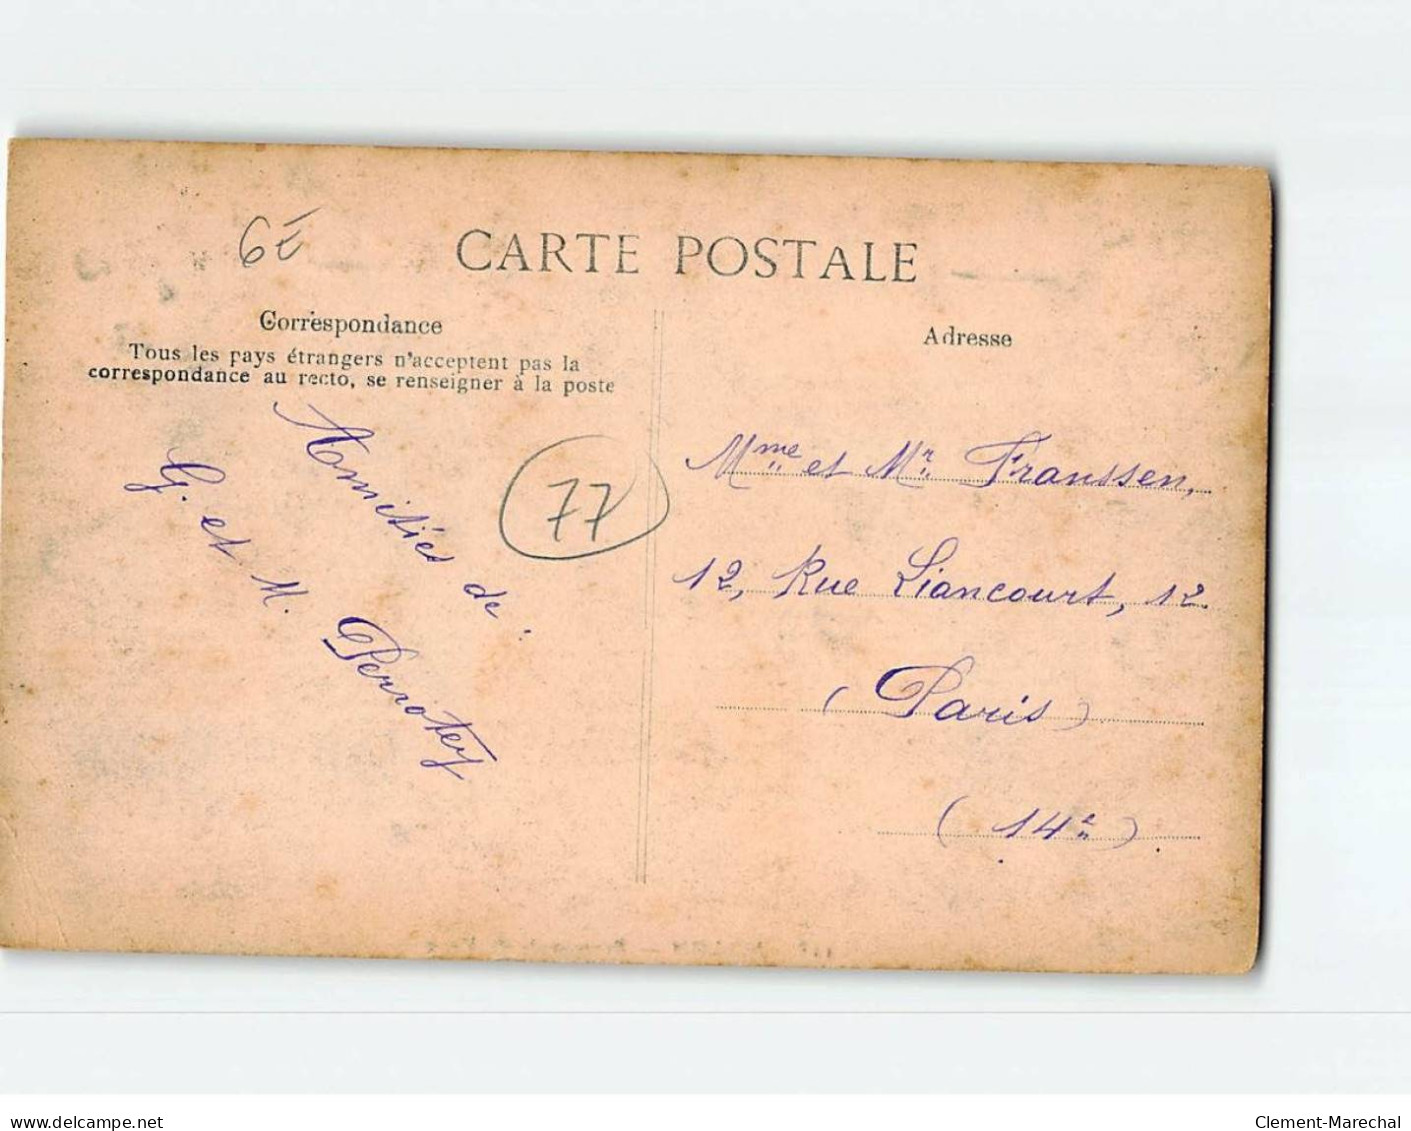 6E
CARTE POSTALE
Correspondance
Tous les pays étrangers n'acceptent pas la
correspondance au recto, se renseigner à la poste
Amitiés de :
G. et M. Perrotey
77
Adresse
Mme et Mr. Franssen,
12, Rue Liancourt, 12
(Paris)
(14e)
www.delcampe.net
Clement-Marechal